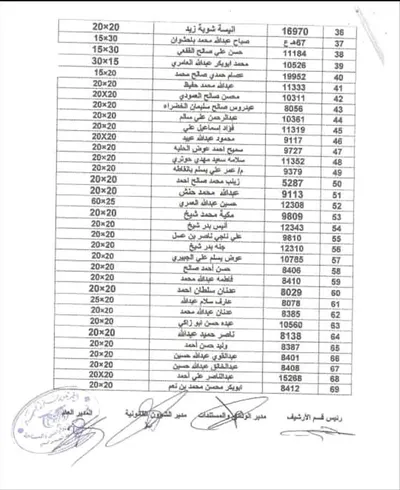 36 16970 انيسة شوبة زيد 20×20
37 67هـ ع صباح عبدالله محمد باحشوان 15×30
38 11184 حسن علي صالح الفقعي 15×30
39 10526 محمد ابوبكر عبدالله العامري 30×15
40 19952 عصام حمدي صالح محمد 15×20
41 11333 عبدالله محمد حفيظ 20×20
42 10311 محسن صالح العمودي 20X20
43 8056 عيدروس صالح سليمان الخضراء 20×20
44 10361 عبدالرحمن علي سالم 20×20
45 11319 فؤاد إسماعيل علي 20×20
46 9117 محمود عبدالله عبيد 20X20
47 9727 سميح احمد عوض 20×20
48 11352 سلامه سعيد مهدي حوثري 20×20
49 9379 م/ عمر علي يسلم 20×20
50 5287 زينب محمد صالح احمد 20×20
51 9113 عبدالله محمد حنش 20×20
52 12308 حسين عبدالله العمري 60×25
53 9809 مكية محمد شيخ 20×20
54 12343 أنيس بدر شيخ 20×20
55 9810 علي ناجي ناصر بن عسل 20×20
56 12310 جنه بدر شيخ 20×20
57 10785 عوض يسلم علي الجبيري 20×20
58 8406 حسن أحمد صالح 20×20
59 8410 فاطمه عبدالله محمد 20×20
60 8029 عدنان سلطان احمد 20×20
61 8078 عارف سلام عبدالله 25×20
62 8385 عدنان عبدالله محمد 20×20
63 10560 عبده حسن ابو زاكي 20×20
64 8138 ناصر حميد عبدالله 20×20
65 8387 وليد حسن أحمد 20×20
66 8401 عبدالقوي عبدالله حسين 20×20
67 8408 عبدالخالق عبدالله حسين 20×20
68 15268 عبدالناصر علي أحمد 20X20
69 8412 ابوبكر محسن محمد بن نعم 20×20
رئيس قسم الأرشيف مدير الوثائق والمستندات مدير الشؤون القانونية المدير العام